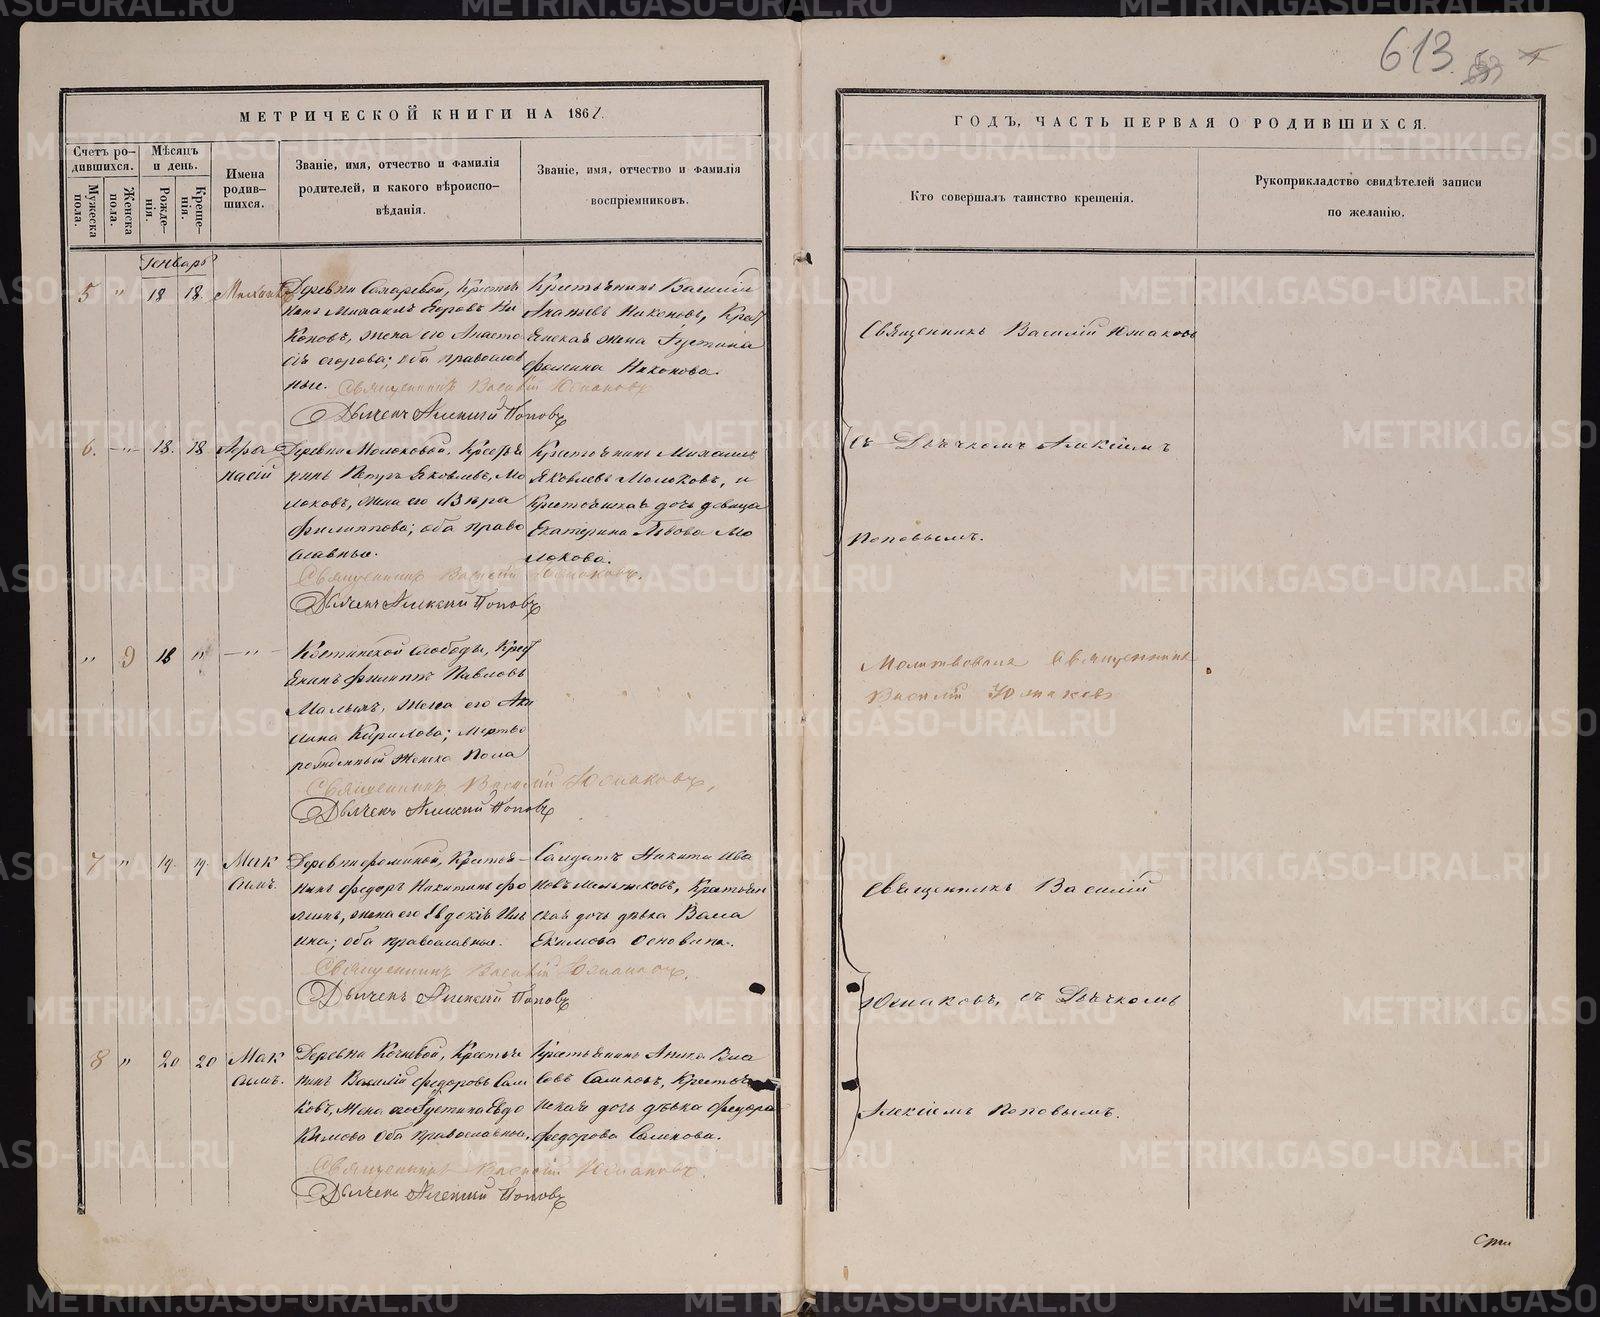 613
МЕТРИЧЕСКОЙ КНИГИ НА 186
Счетъ ро-
дившихся.
Мужеска
пола.
Женска
пола.
Мѣсяцъ
и день.
Рожде-
нія.
Креще-
нія.
Имена
родив-
шихся.
Званіе, имя, отчество и фамилія
родителей, и какого вѣроиспо-
вѣданія.
Званіе, имя, отчество и фамилія
воспріемниковъ.
Генварь
5 " 18 18. Михаилъ
Деревни Крестья
нинъ Михаилъ Егоровъ Ни
коновъ, жена его Анаста
сія Егорова; оба православ
ные. Священникъ Василій Южаковъ
Дьячекъ Алексій Поповъ
Крестьянинъ Василій
Никоновъ, Крест
енская жена Іустина
Фомина Никонова.
6. " 18. 18 Афа
насій
Деревни Молоковой, Крестья
нинъ Петръ Яковлевъ, Мо
локовъ, жена его Вѣра
Филиппова; оба право
славные.
Священникъ Василій Южаковъ.
Дьячекъ Алексій Поповъ
Крестьянинъ Михаилъ
Яковлевъ Молоковъ, и
Крестьянская дочь девица
Екатерина Львова Мо
локова.
" 9 18 " "
слободы, Крест
янинъ Филиппъ Павловъ
жена его Аку
лина Кирилова; Мертво
рожденный женска пола
Священникъ Василій Южаковъ,
Дьячекъ Алексій Поповъ
7 " 19. 19. Мак
симъ.
Деревни Фоминой, Крестья-
нинъ Федоръ Никитинъ Фо
минъ, жена его Евдокія Иль
ина; оба православные.
Священникъ Василій Южаковъ.
Дьячекъ Алексій Поповъ
Солдатъ Никита Ива
новъ Мельниковъ, Крестьян
ская дочь дѣвка Васса
Екимова
8 " 20 20 Мак
симъ.
Деревни Кочневой, Крестья
нинъ Василій Федоровъ Сам
ковъ, Жена его Іустина Евдо
кимова Оба православные.
Священникъ Василій Южаковъ.
Дьячекъ Алексій Поповъ
Крестьянинъ Вла
совъ Крестьян
ская дочь дѣвка Федора
Федорова
ГОДЪ, ЧАСТЬ ПЕРВАЯ О РОДИВШИХСЯ.
Кто совершалъ таинство крещенія.
Рукоприкладство свидѣтелей записи
по желанію.
Священникъ Василій Южаковъ
съ Дьячкомъ Алексіемъ
Поповымъ.
Молитвовалъ Священникъ
Василій Южаковъ
Священникъ Василій
Южаковъ, съ Дьячкомъ
Алексіемъ Поповымъ.
METRIKI.GASO-URAL.RU